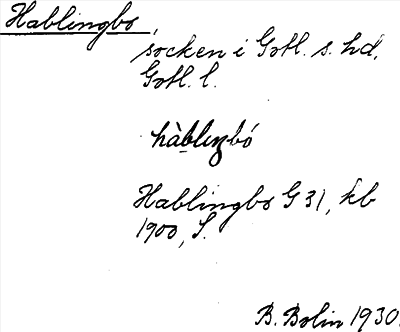 Hablingbo,
socken i Gotl. s. hd,
Gotl. l.
hàblıŋbó
Hablingbo G 31, kb
1900, S.
B. Bolin 1930.